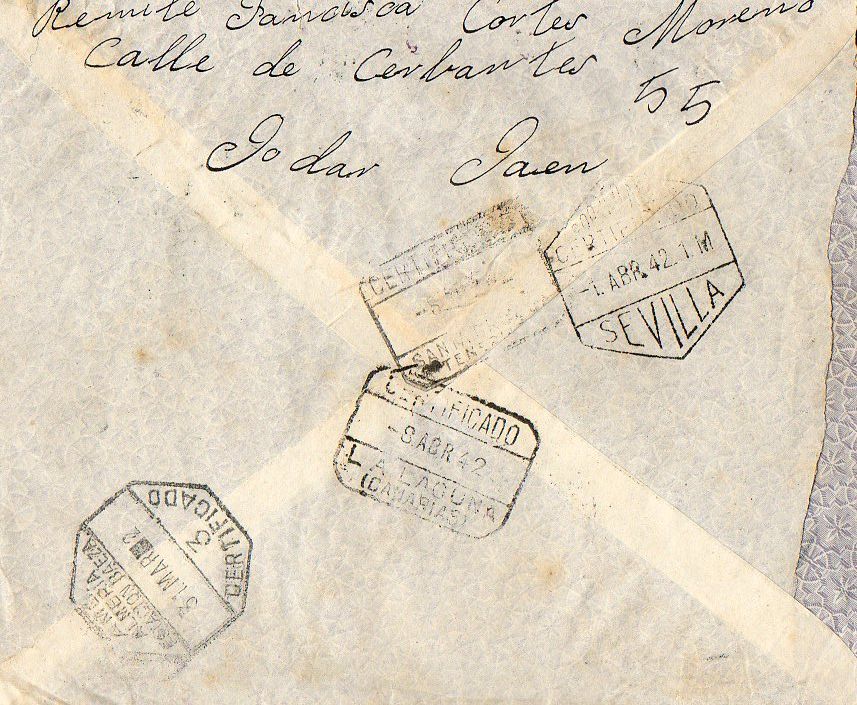 Remite Francisca Cortes Moreno
Calle de Cerbantes
55
Jodar Jaen
CERTIFICADO
-1. ABR. 42. 1 M
SEVILLA
CERTIFICADO
SANTA
TENE
CERTIFICADO
-8 ABR 42
LA LAGUNA
(CANARIAS)
CERTIFICADO
3
31 MAR 42
ESTACION BAEZA
ALMERIA